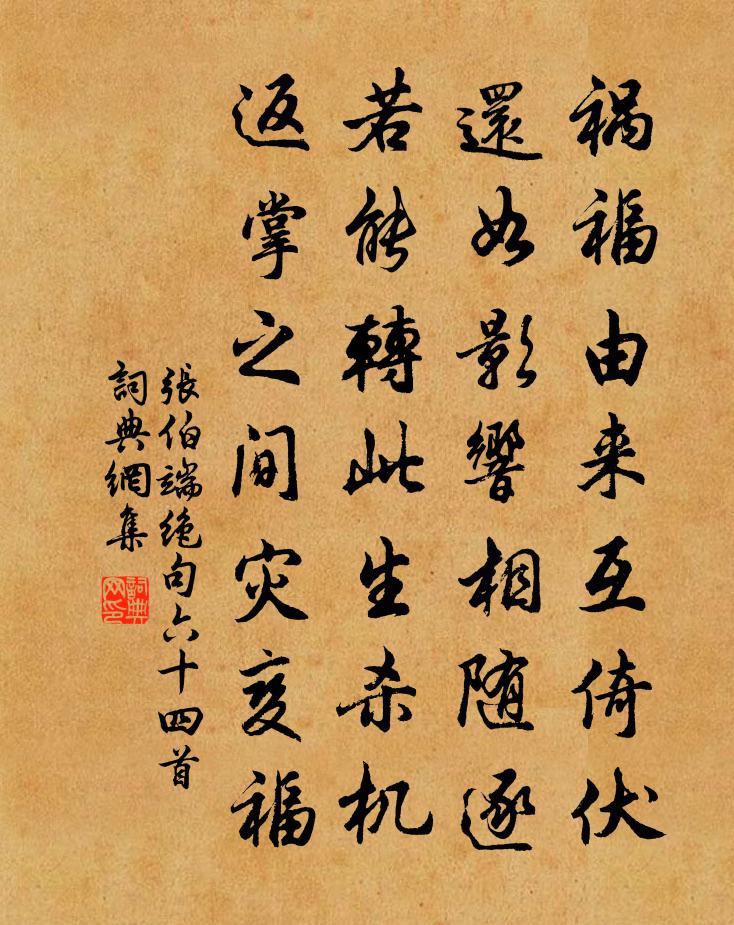 祸福由来互倚伏
還如影響相随逐
若能轉此生杀机
返掌之间灾变福
張伯端绝句六十四首
詞典網集
詞典网印